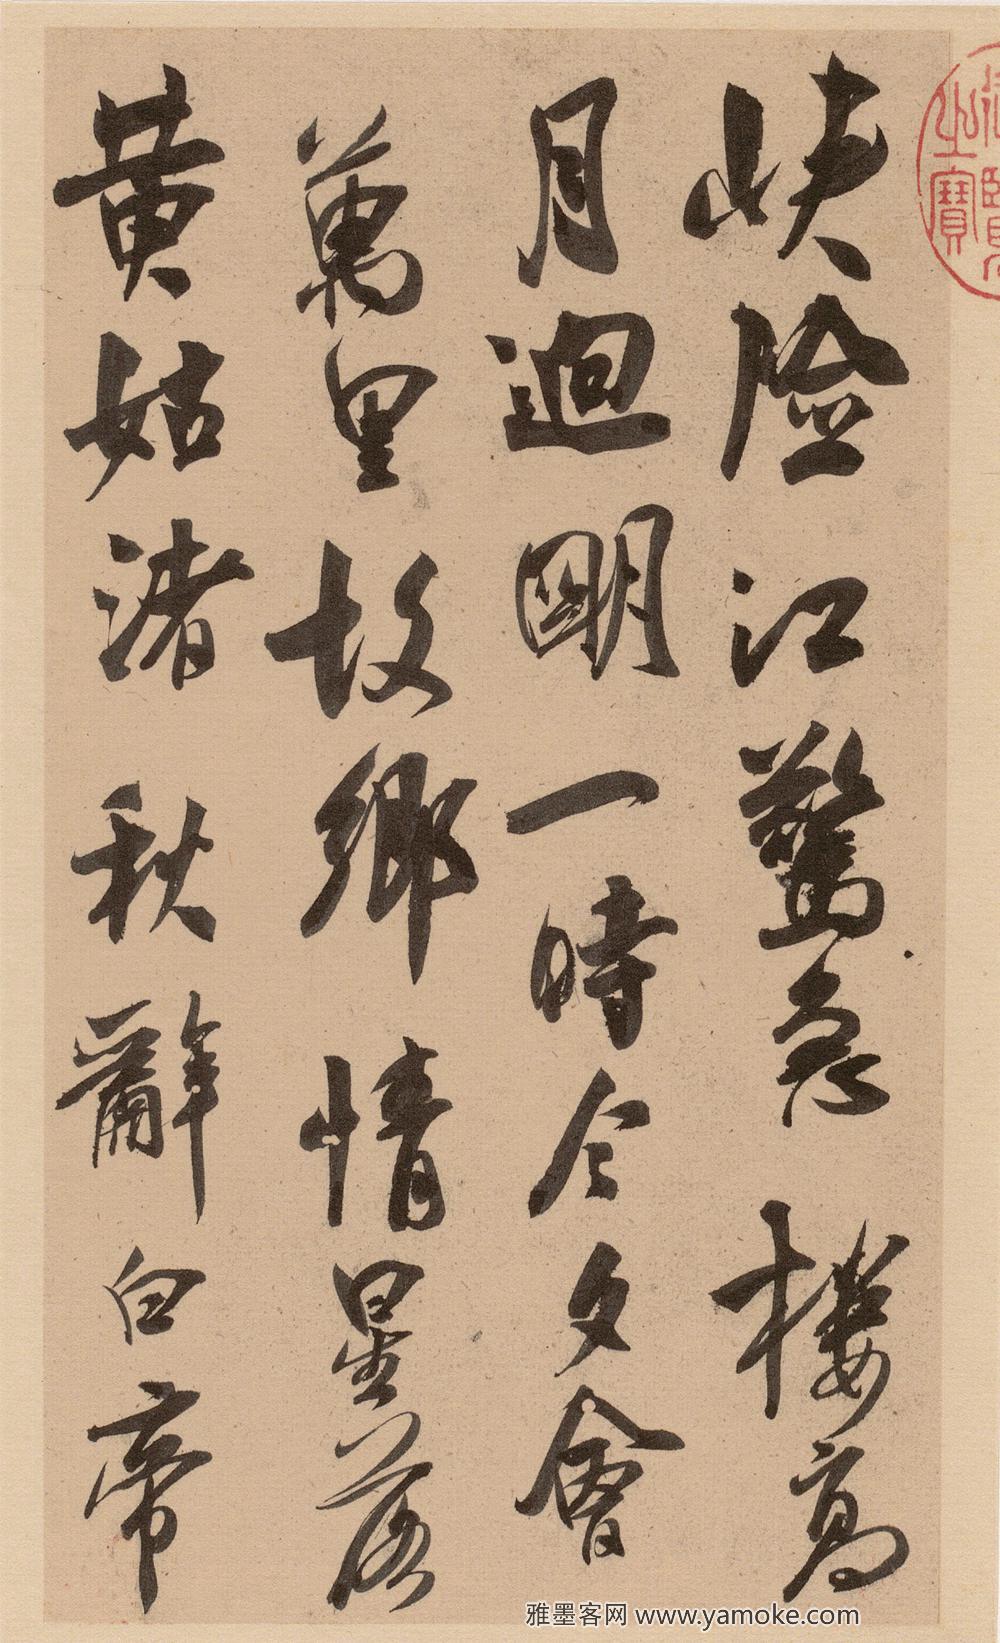 峽險江驚急樓高
月迥明一時今夕會
萬里故鄉情星落
黃姑渚秋辭白帝
之寶
雅墨客网 www.yamoke.com